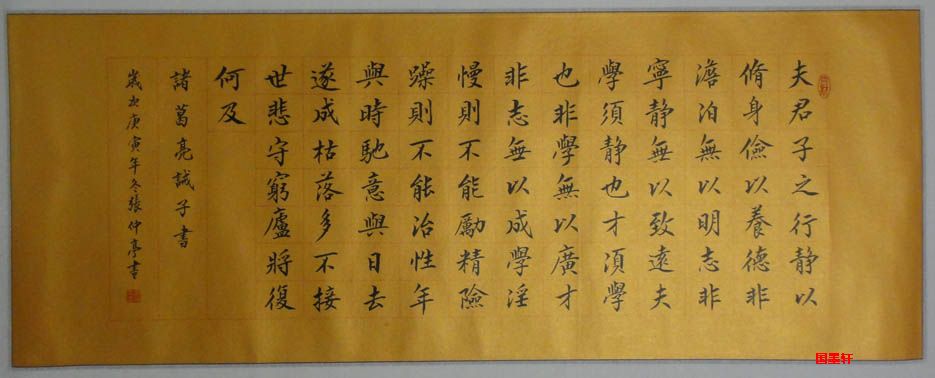 夫君子之行静以
脩身儉以養德非
澹泊無以明志非
寧静無以致遠夫
學須静也才湏學
也非學無以廣才
非志無以成學淫
慢則不能勵精險
躁則不能冶性年
與時馳意與日去
遂成枯落多不接
世悲守窮廬將復
何及
諸葛亮誡子書
歲次庚寅年冬張仲亭書
国墨轩